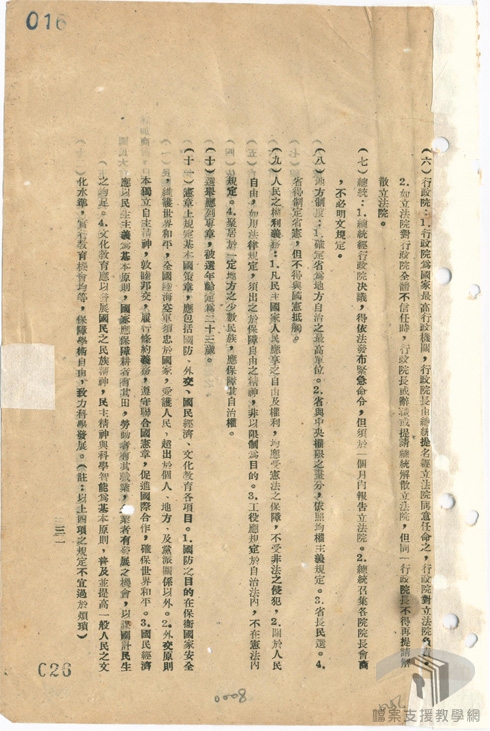 016
(六)行政院:1.行政院爲國家最高行政機關,行政院長由總統提名經立法院同意任命之,行政院對立法院負責
2.如立法院對行政院全體不信任時,行政院長或辭職或提請總統解散立法院,但同一行政院長不得再提請解
散立法院。
(七)總統:1.總統經行政院決議,得依法發布緊急命令,但須於一個月內報告立法院。2.總統召集各院院長會商
,不必明文規定。
(八)地方制度:1.確定省爲地方自治之最高單位。2.省與中央權限之劃分,依照均權主義規定。3.省長民選。4.
省得制定省憲,但不得與國憲抵觸。
(九)人民之權利義務:1.凡民主國家人民應享之自由及權利,均應受憲法之保障,不受非法之侵犯,2.關於人民
自由,如用法律規定,須出之於保障自由之精神,非以限制爲目的。3.工役應規定於自治法內,不在憲法內
規定。4.聚居於一定地方之少數民族,應保障其自治權。
(十)選舉應列專章,被選年齡定爲二十三歲。
(十一)憲章上規定基本國策章,應包括國防、外交、國民經濟、文化教育各項目。1.國防之目的在保衛國家安全
,維護世界和平,全國陸海空軍須忠於國家,愛護人民、超出於個人、地方、及黨派關係以外。2.外交原則
本獨立自主精神,敦睦邦交,履行條約義務,遵守聯合國憲章,促進國際合作,確保世界和平。3.國民經濟
應以民生主義爲基本原則,國家應保障耕者有其田,勞動者有其職業,企業者有發展之機會,以謀國計民生
之均足。4.文化教育應以發展國民之民族精神,民主精神與科學智能爲基本原則,普及並提高一般人民之文
化水準,實行教育機會均等,保障學術自由,致力科學發展。(註:以上四項之規定不宜過於煩瑣)
026
檔案支援教學網